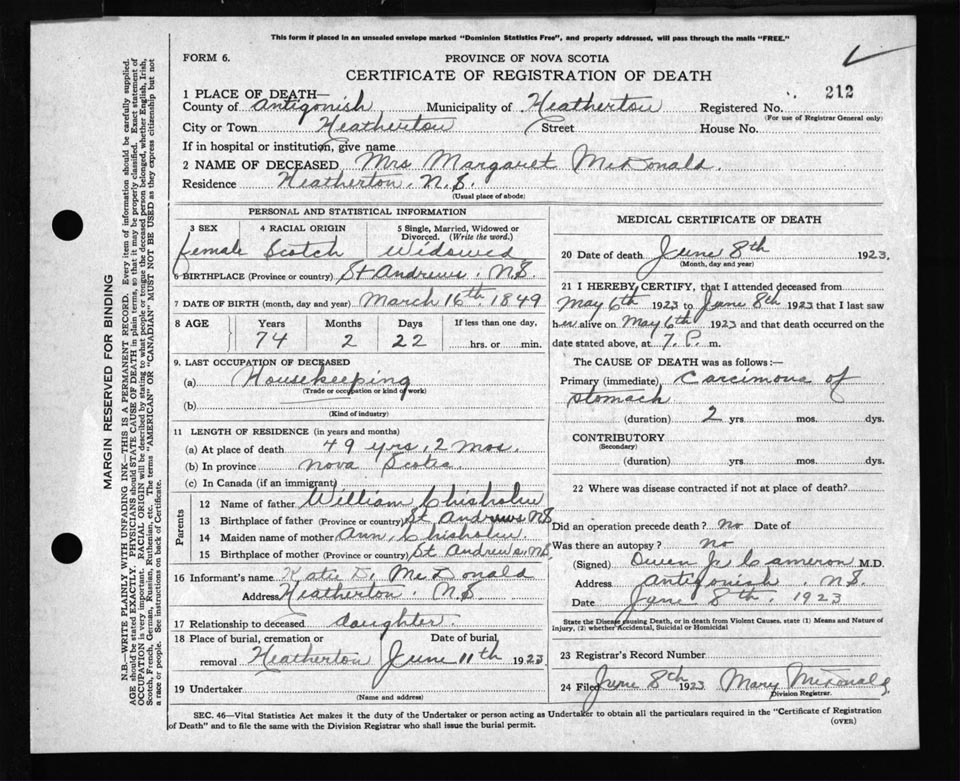 This form if placed in an unsealed envelope marked "Dominion Statistics Free", and properly addressed, will pass through the mails "FREE."
FORM 6.
PROVINCE OF NOVA SCOTIA
CERTIFICATE OF REGISTRATION OF DEATH
1 PLACE OF DEATH—
County of Antigonish Municipality of Heatherton Registered No. 212
(For use of Registrar General only)
City or Town Heatherton Street House No.
If in hospital or institution, give name
2 NAME OF DECEASED Mrs Margaret McDonald.
Residence Heatherton. N.S.
(Usual place of abode)
PERSONAL AND STATISTICAL INFORMATION
3 SEX 4 RACIAL ORIGIN 5 Single, Married, Widowed or Divorced. (Write the word.)
female Scotch Widowed
6 BIRTHPLACE (Province or country) St Andrews. N.S.
7 DATE OF BIRTH (month, day and year) March 16th. 1849
8 AGE Years Months Days If less than one day,
74 2 22 hrs. or min.
9. LAST OCCUPATION OF DECEASED
(a) Housekeeping
(Trade or occupation or kind of work)
(b)
(Kind of industry)
11 LENGTH OF RESIDENCE (in years and months)
(a) At place of death 49 yrs, 2 mos.
(b) In province Nova Scotia
(c) In Canada (if an immigrant)
Parents
12 Name of father William Chisholm
13 Birthplace of father (Province or country) St Andrews N.S
14 Maiden name of mother Ann Chisholm
15 Birthplace of mother (Province or country) St Andrews. N.S
16 Informant's name Katie D. McDonald
Address Heatherton. N.S
17 Relationship to deceased daughter.
18 Place of burial, cremation or Date of burial
removal Heatherton June 11th 1923
19 Undertaker
(Name and address)
MEDICAL CERTIFICATE OF DEATH
20 Date of death June 8th 1923.
(Month, day and year)
21 I HEREBY CERTIFY, that I attended deceased from
May 6th 1923 to June 8th 1923 that I last saw
her alive on May 6th 1923 and that death occurred on the
date stated above, at 7. P. m.
The CAUSE OF DEATH was as follows:—
Primary (immediate) Carcimova of
stomach
(duration) 2 yrs. mos. dys.
CONTRIBUTORY
(Secondary)
(duration) yrs. mos. dys.
22 Where was disease contracted if not at place of death?
Did an operation precede death? no Date of
Was there an autopsy? no
(Signed) Owen J. Cameron M.D.
Address Antigonish. N.S
Date June 8th. 1923
State the Disease causing Death, or in death from Violent Causes, state (1) Means and Nature of
Injury, (2) whether Accidental, Suicidal or Homicidal
23 Registrar's Record Number
24 Filed June 8th 1923 Mary McDonald
Division Registrar.
SEC. 46—Vital Statistics Act makes it the duty of the Undertaker or person acting as Undertaker to obtain all the particulars required in the "Certificate of Registration
of Death" and to file the same with the Division Registrar who shall issue the burial permit.
(OVER)
MARGIN RESERVED FOR BINDING
N.B.—WRITE PLAINLY WITH UNFADING INK—THIS IS A PERMANENT RECORD. Every item of information should be carefully supplied.
AGE should be stated EXACTLY. PHYSICIANS should STATE CAUSE OF DEATH in plain terms, so that it may be properly classified. Exact statement of
OCCUPATION is very important. RACIAL ORIGIN will be described by stating to what people or tongue the deceased person belonged, whether English, Irish,
Scotch, French, German, Russian, Ruthenian, etc. The terms "AMERICAN" or "CANADIAN" MUST NOT BE USED as they express citizenship but not
a race or people. See instructions on back of Certificate.